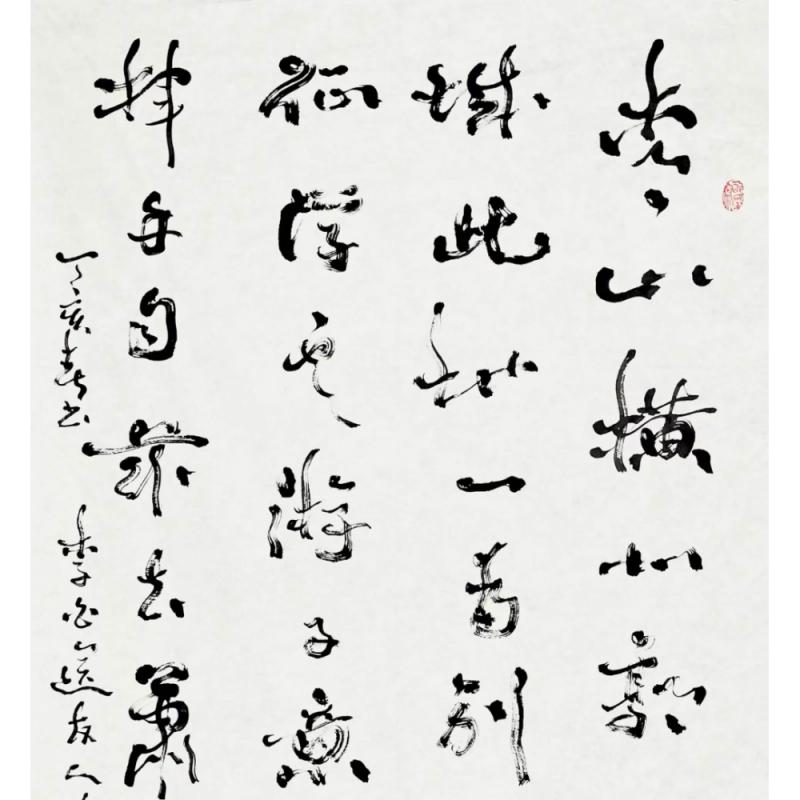 青山横北郭
城此地一為别
征浮云游子意
揮手自兹去蕭
丁亥春书 李白送友人